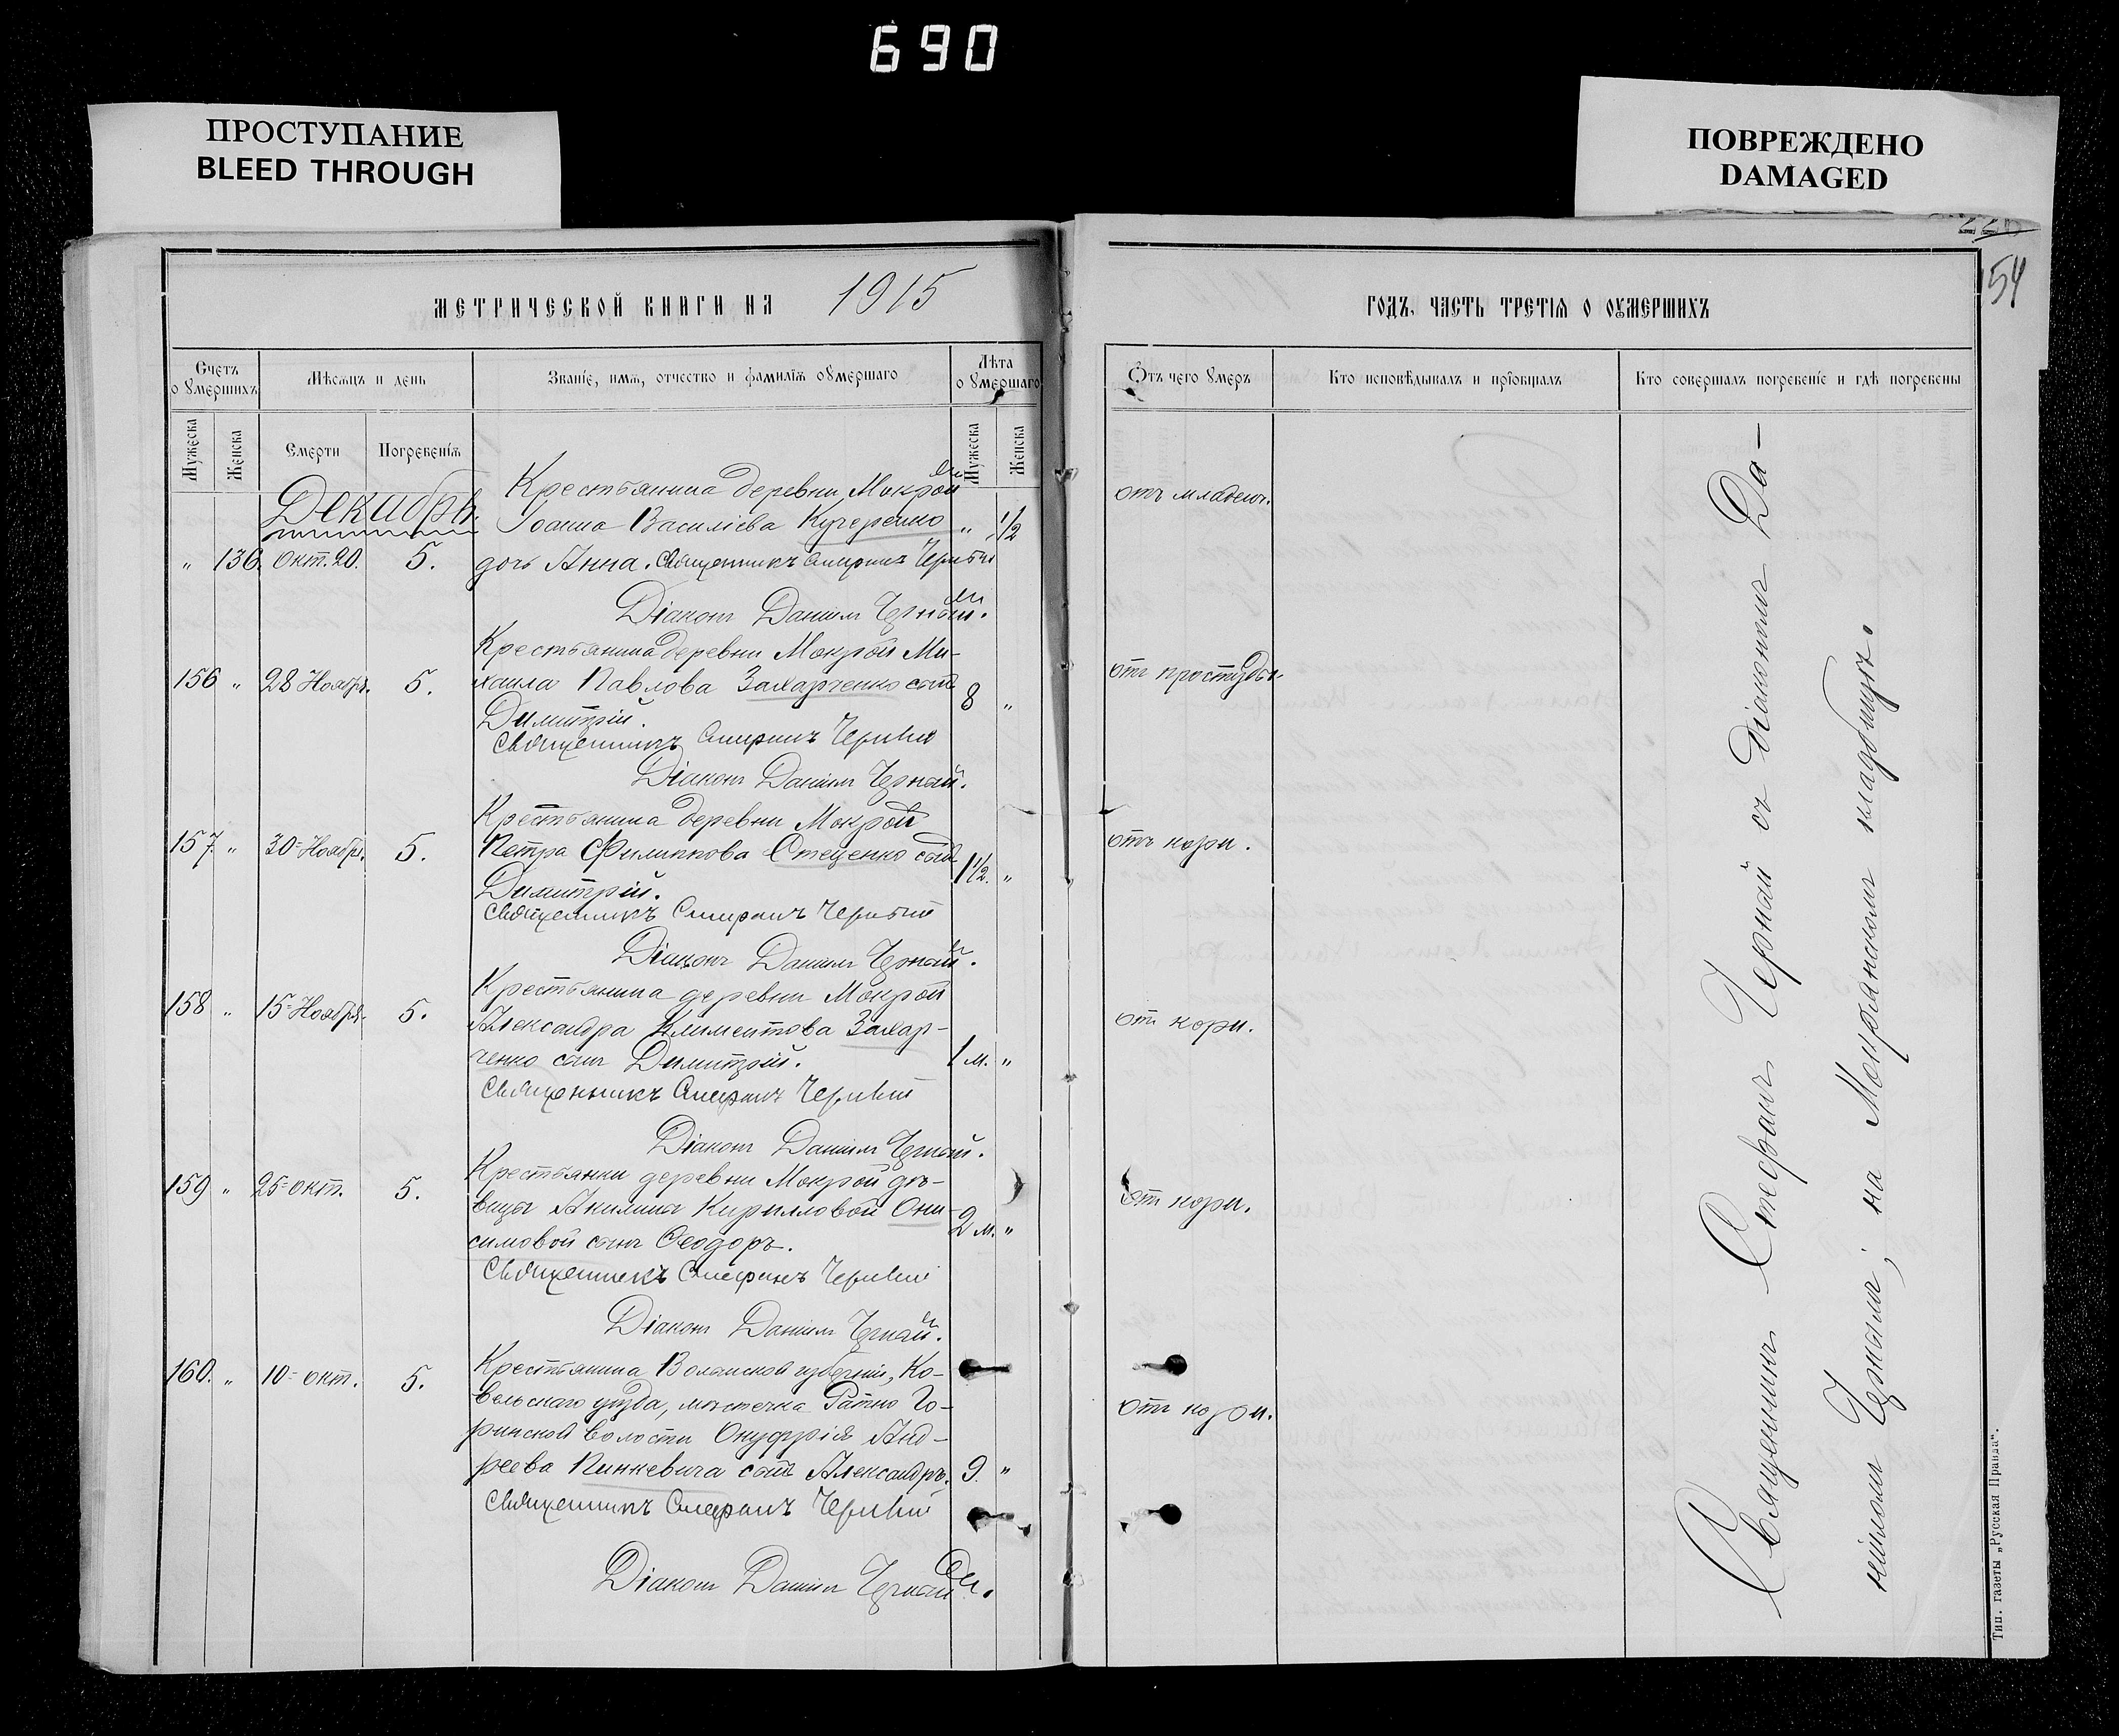 690
ПРОСТУПАНИЕ
BLEED THROUGH
ПОВРЕЖДЕНО
DAMAGED
154
МЕТРИЧЕСКОЙ КНИГИ НА 1915
ГОДЪ, ЧАСТЬ ТРЕТІѦ О ОУМЕРШИХЪ
Счетъ о умершихъ
Мѣсяцъ и день
Званіе, имѧ, отчество и фамиліѧ оумершаго
Лѣта о умершаго
Отъ чего умеръ
Кто исповѣдывалъ и пріобщалъ
Кто совершалъ погребеніе и гдѣ погребены
Мужеска
Женска
Смерти
Погребеніѧ
Мужеска
Женска
Декабрь.
Крестьянина деревни Мокрой
Іоанна Василіева Кучеренко „ 1/2
„ 136. Окт. 20. 5. дочь Анна. Священникъ Стефанъ Черный
отъ младенч.
Діаконъ Даніилъ Чернай.
Крестьянина деревни Мокрой Ми-
156 „ 28 Ноября. 5. хаила Павлова Захарченко сынъ 8 „
отъ простуды.
Димитрій.
Священникъ Стефанъ Черный
Діаконъ Даніилъ Чернай.
Крестьянина деревни Мокрой
157. „ 30= Ноября. 5. Петра Филиппова Стеценко сынъ 1 1/2. „
отъ кори.
Димитрій.
Священникъ Стефанъ Черный
Діаконъ Даніилъ Чернай.
Крестьянина деревни Мокрой
158 „ 15= Ноября. 5. Александра Климентова Захар-
отъ кори.
ченко сынъ Димитрій. 1 м. „
Священникъ Стефанъ Черный
Діаконъ Даніилъ Чернай.
Крестьянки деревни Мокрой дѣ-
159 „ 25= окт. 5. вицы Акилины Кирилловой Они- 2 м. „
отъ кори.
симовой сынъ Ѳеодоръ.
Священникъ Стефанъ Черный
Діаконъ Даніилъ Чернай.
160. „ 10= окт. 5. Крестьянина Волынской губерніи, Ко-
вельскаго уѣзда, мѣстечка Ратно Го-
отъ кори.
ринской волости Онуфрія Анд-
реева Пинкевича сынъ Александръ. 9. „
Священникъ Стефанъ Черный
Діаконъ Даніилъ Чернай.
Священникъ Стефанъ Чернай съ діакономъ Да-
ніиломъ Чернымъ; на Мокрянскомъ кладбищѣ.
Тип. газеты „Русская Правда“.